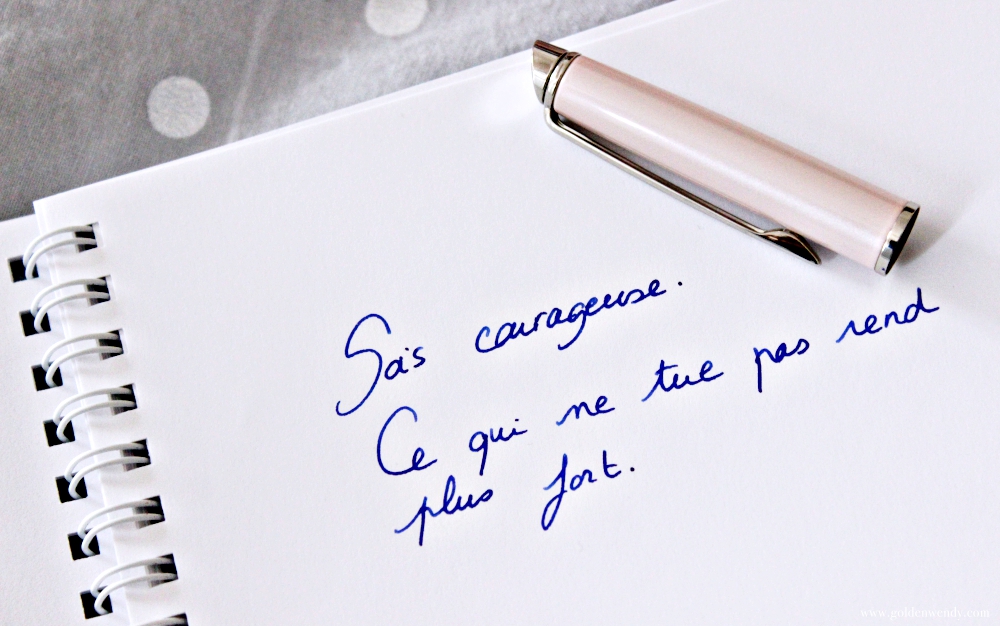 Sois courageuse.
Ce qui ne tue pas rend
plus fort.
www.goldenwendy.com